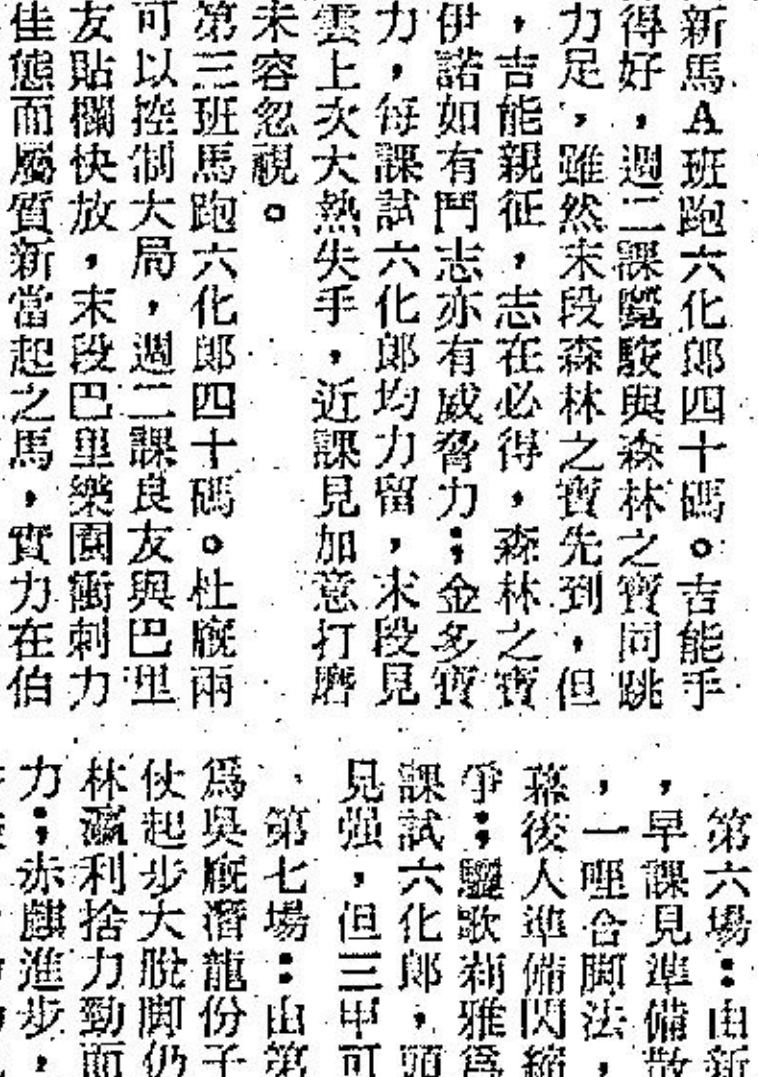 新馬A班跑六化郎四十碼。吉能手
得好，週二課覽駿與森林之寶同跳
力足、，雖然末段森林之寶先到，但
，吉能親征，志在必得，森林之寶
伊諾如有鬥志亦有威脅力；金多寶
力，每課試六化郎均力留，末段見
雲上次大熱失手，近課見加意打磨
未容忽視。
第三班馬跑六化郎四十碼。杜廐兩
可以控制大局，週二課良友與巴里
友貼欄快放，末段巴里樂園衝刺力
佳態而屬質新當起之馬，實力在伯
第六場：由新
，早課見準備散
，一哩合脚法，
幕後人準備閃縮
爭；驪歌莉雅爲
課試六化郎，頭
見强，但三甲可
第七場：由第
爲吳廐潛龍份子
仗起步大脫脚仍
林瀛利捨力勁而
力；赤麒進步，